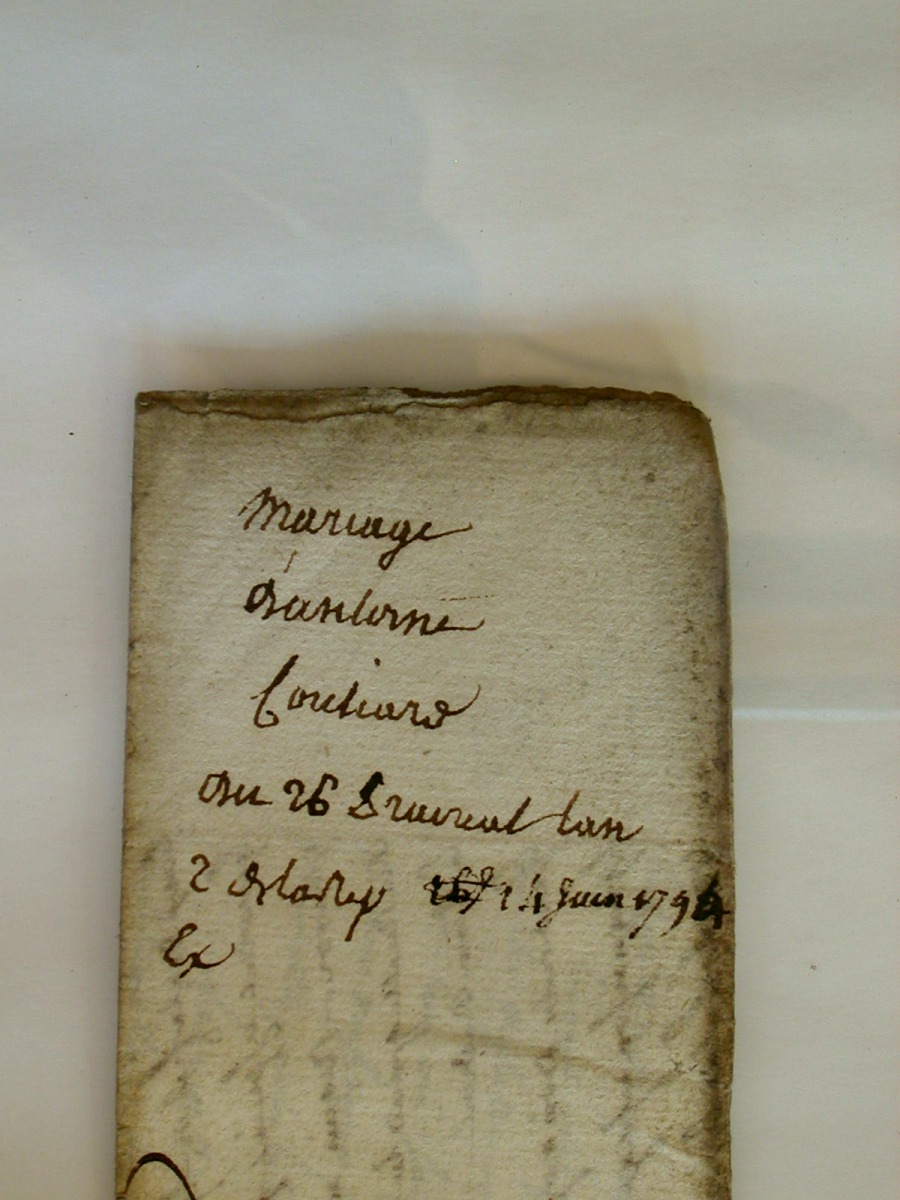 Mariage
d'antoine
Coutiard
du 26 prairial lan
2 de la Rep 14 Juin 1794
Ex